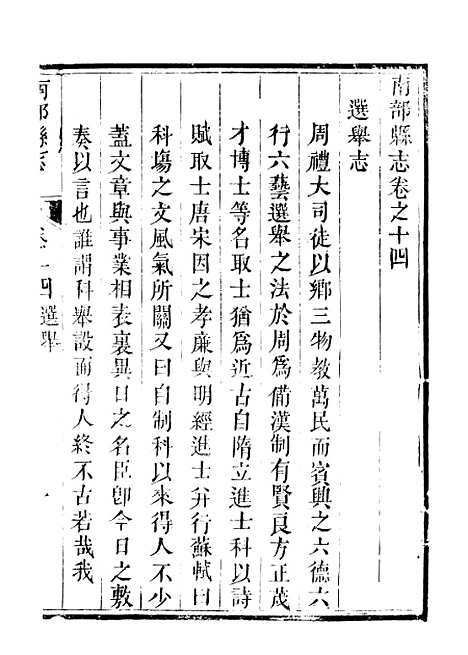 南部縣志卷之十四
選舉志
周禮大司徒以鄉三物敎萬民而賓興之六德六
行六藝選舉之法於周爲備漢制有賢良方正茂
才博士等名取士猶爲近古自隋立進士科以詩
賦取士唐宋因之孝廉與明經進士幷行蘇軾曰
科塲之文風氣所關又曰自制科以來得人不少
蓋文章與事業相表裏異日之名臣卽今日之敷
奏以言也誰謂科舉設而得人終不古若哉我
南部縣志
卷十四選舉
一